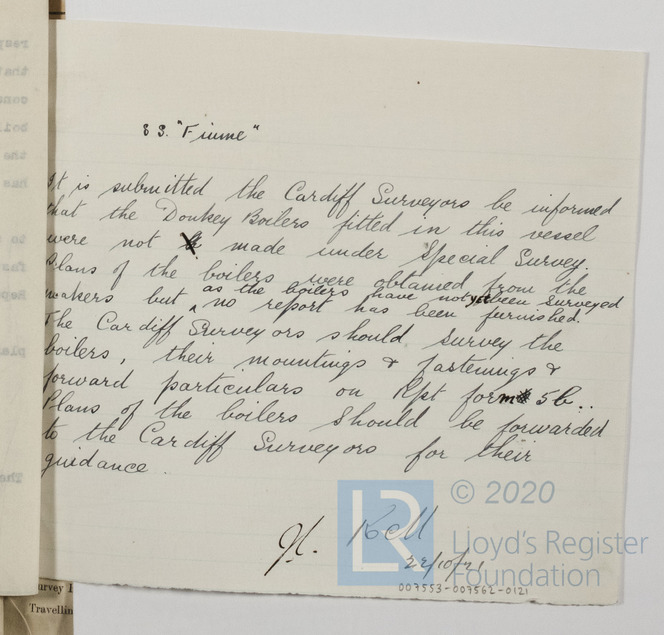 SS. "Fiume"
It is submitted the Cardiff Surveyors be informed
that the Donkey Boilers fitted in this vessel
were not made under Special Survey.
Plans of the boilers were obtained from the
makers but as the boilers have not yet been surveyed
no report has been furnished.
The Cardiff Surveyors should survey the
boilers, their mountings & fastenings &
forward particulars on Rpt form 5b..
Plans of the boilers should be forwarded
to the Cardiff Surveyors for their
guidance.
22/10/21
007553-007562-0121
LR
© 2020
Lloyd's Register
Foundation
urvey
Travellin
resp
that
cons
boil
the
has
to
Rep
plan
The